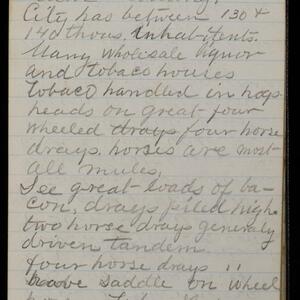 City has between 130 &
140 thous. Inhabitents.
Many wholesale liquor
and tobaco houses
Tobaco handled in hogs
heads on great four
wheeled drays four horse
drays. horses are most
all mules.
See great loads of ba-
con, drays piled high.
two horse drays generaly
driven tandem
four horse drays "
have saddle on wheel